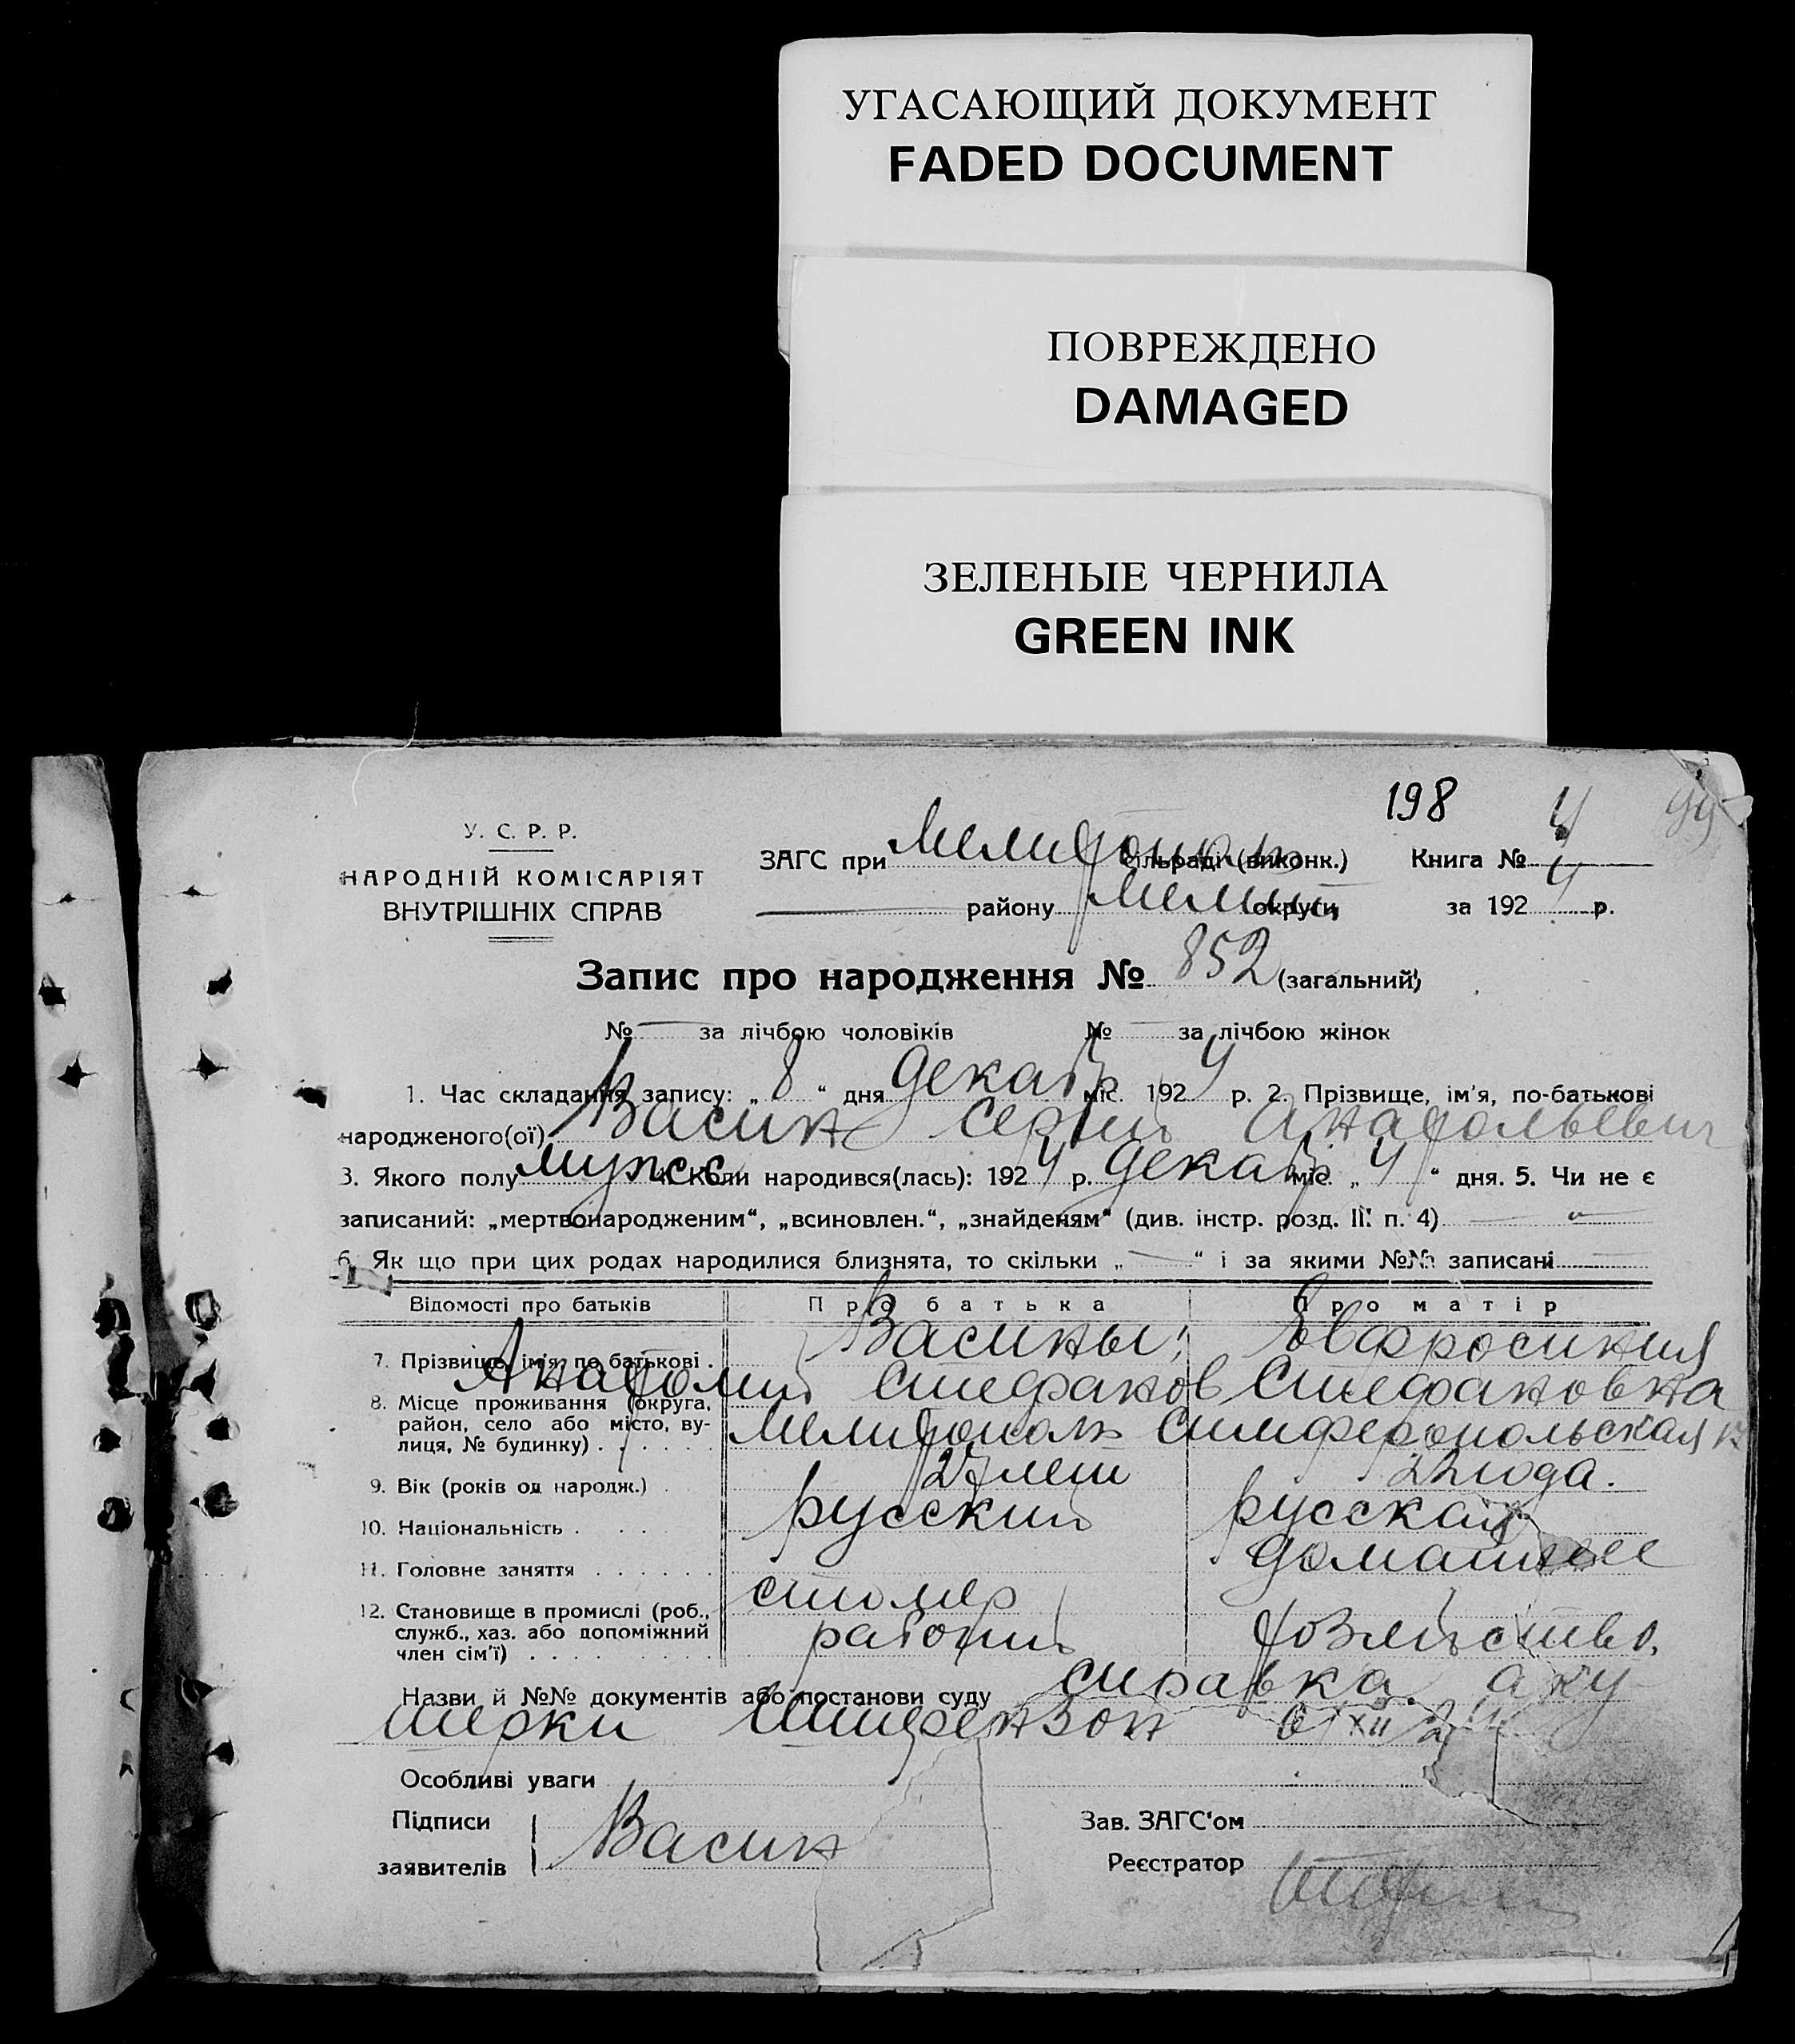 УГАСАЮЩИЙ ДОКУМЕНТ
FADED DOCUMENT
ПОВРЕЖДЕНО
DAMAGED
ЗЕЛЕНЫЕ ЧЕРНИЛА
GREEN INK
198 4 99
У. С. Р. Р.
НАРОДНІЙ КОМІСАРІЯТ
ВНУТРІШНІХ СПРАВ
ЗАГС при Мелитополь сільраді (виконк.) Книга № 4
району Мелит округи за 1924 р.
Запис про народження № 852 (загальний)
№ за лічбою чоловіків № за лічбою жінок
1. Час складання запису: „ 8 “ дня декабр міс. 1924 р. 2. Прізвище, ім'я, по-батькові
народженого(ої) Васин Сергий Анатольевич
3. Якого полу мужск 4. Коли народився(лась): 1924 р. декабр міс. „ 4 “ дня. 5. Чи не є
записаний: „мертвонародженим“, „всиновлен.“, „знайденям“ (див. інстр. розд. III п. 4)
6. Як що при цих родах народилися близнята, то скільки „ “ і за якими №№ записані
Відомості про батьків Про батька Про матір
7. Прізвище, ім'я, по батькові . Васины; Евфросиния
Анатолий Стефанов Стефановна
8. Місце проживання (округа,
район, село або місто, ву-
лиця, № будинку) . . . . . . Мелитополь Симферопольская
9. Вік (років од народж.) 27 лет 22 года.
10. Національність . . . русский русская
11. Головне заняття . . . . . . столяр домашнее
12. Становище в промислі (роб.,
служб., хаз. або допоміжний
член сім'ї) . . . . . . . . . рабочий хозяйство,
Назви й №№ документів або постанови суду справка аку-
шерки 6/XII 24
Особливі уваги
Підписи
заявителів Васин
Зав. ЗАГС'ом
Реєстратор